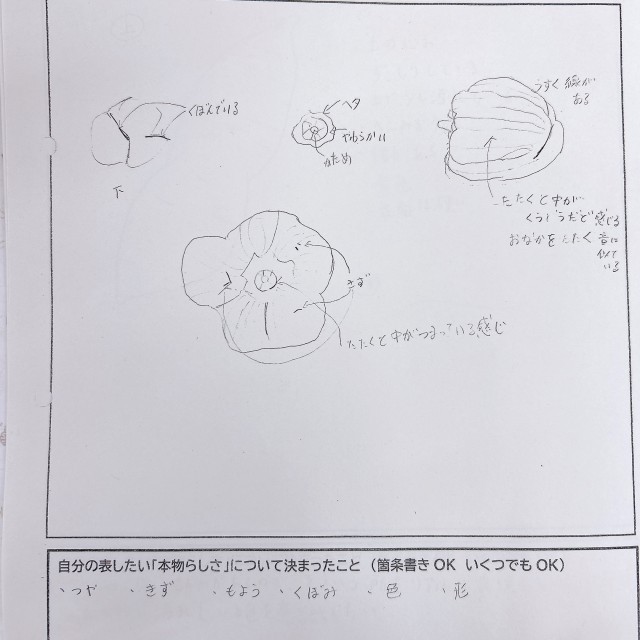 くぼんでいる
下
ヘタ
やわらかい
かため
うすく線が
ある
たたくと中が
くうどうだと感じる
おなかをたたく音に
似て
いる
きず
たたくと中がつまっている感じ
自分の表したい「本物らしさ」について決まったこと（箇条書きOK いくつでもOK）
・つや ・きず ・もよう ・くぼみ ・色 ・形